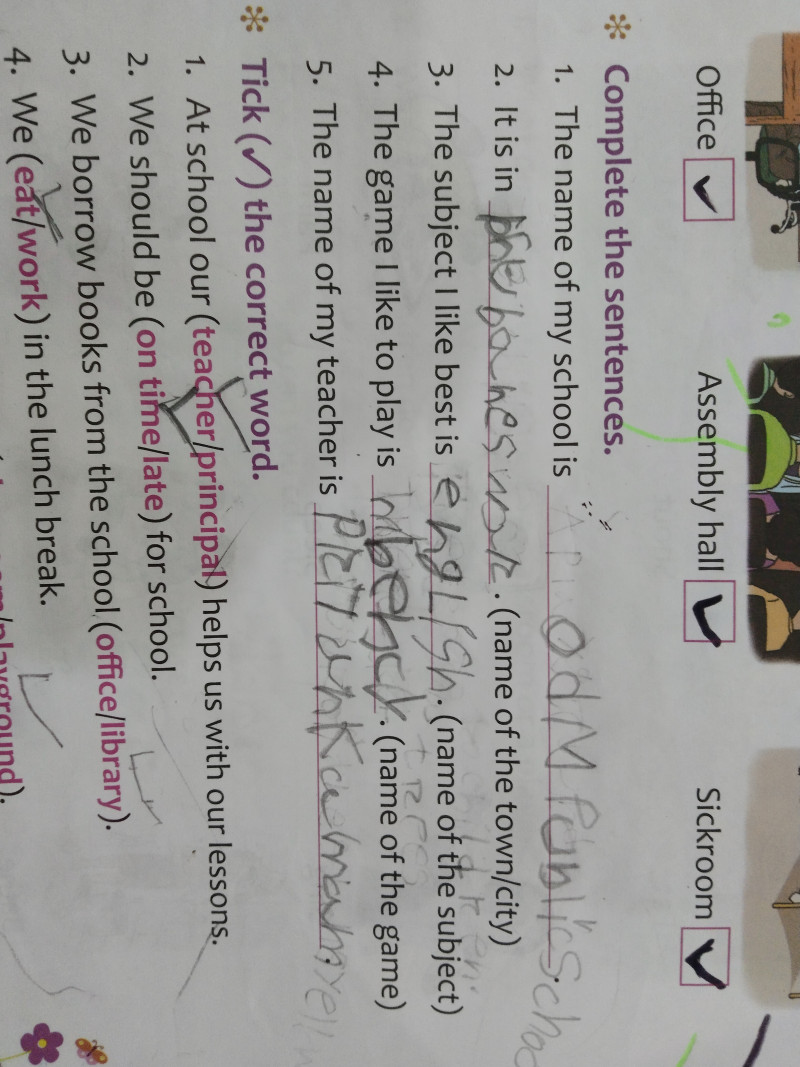 Office ✓ Assembly hall ✓ Sickroom ✓
* Complete the sentences.
1. The name of my school is ODM Public Schoo
2. It is in . (name of the town/city)
3. The subject I like best is english. (name of the subject)
4. The game I like to play is . (name of the game)
5. The name of my teacher is .
* Tick (✓) the correct word.
1. At school our (teacher/principal) helps us with our lessons.
2. We should be (on time/late) for school.
3. We borrow books from the school (office/library).
4. We (eat/work) in the lunch break.
/playground).